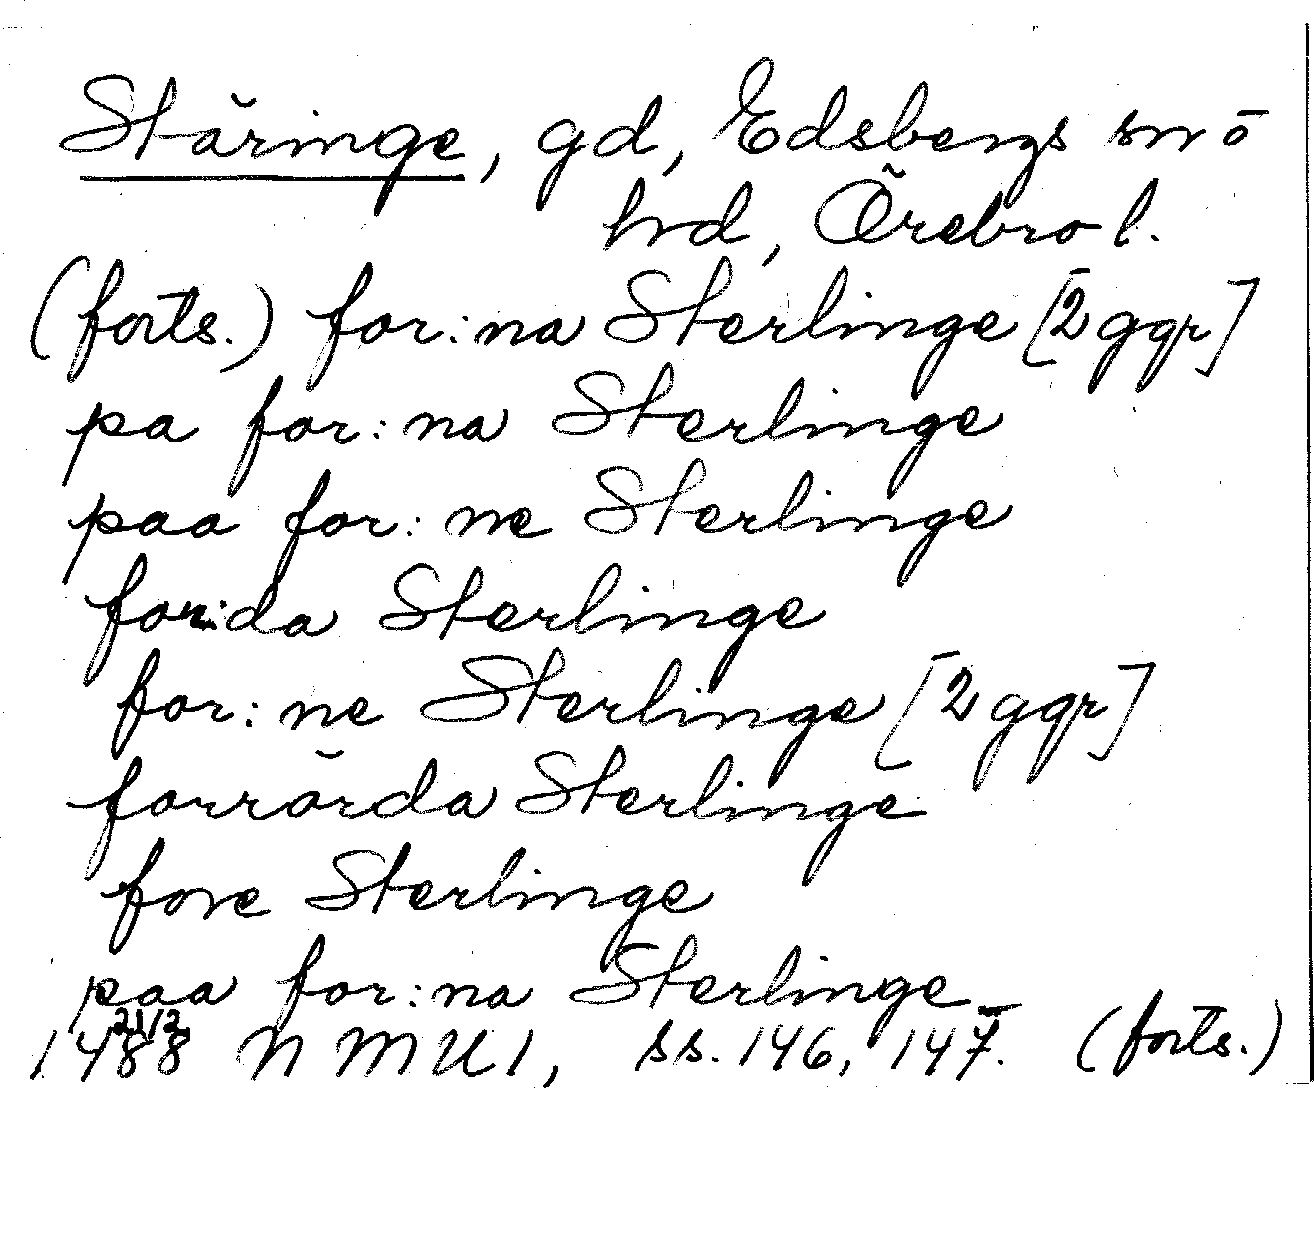 Stäringe, gd, Edsbergs sn o
hd, Örebro l.
(forts.) for:na Sterlinge [2 ggr]
pa for:na Sterlinge
paa for:ne Sterlinge
for:da Sterlinge
for:ne Sterlinge [2 ggr]
forrörda Sterlinge
fore Sterlinge
paa for:na Sterlinge
1488 21/2 NMU1, ss. 146, 147. (forts.)